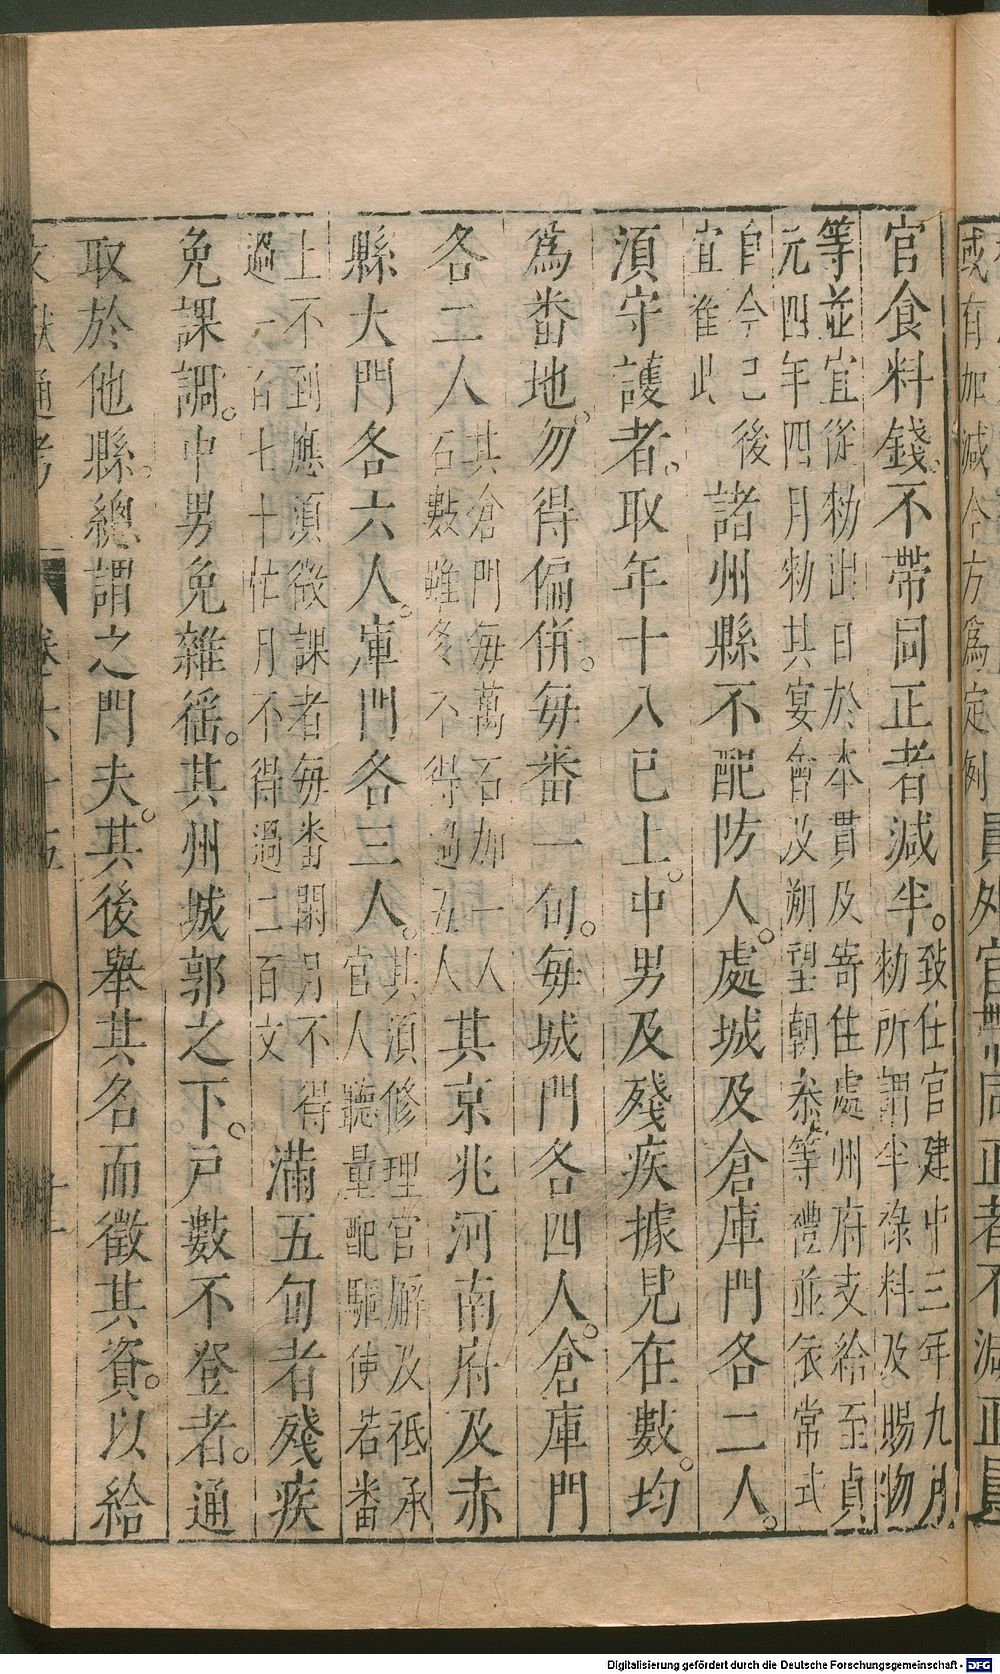 官食料錢。不帶同正者減半。致仕官建中三年九月
勑所謂半祿料及賜物
等並宜從勑出日於本貫及寄住處州府支給至貞
元四年四月勑其宴會及朔望朝叅等禮並依常式
自今已後
宜准此
諸州縣不配防人。處城及倉庫門各二人。
須守護者。取年十八已上。中男及殘疾據見在數。均
爲番地。勿得偏併。每番一旬。每城門各四人。倉庫門
各二人
其倉門每萬石加一人
石數雖多不得過五人
其京兆河南府及赤
縣大門各六人。庫門各三人。
其須修理官廨及祗承
官人聽量配驅使若番
上不到應須徵課者每番閑月不得
過一百七十忙月不得過二百文
滿五旬者殘疾
免課調。中男免雜徭。其州城郭之下。戶數不登者。通
取於他縣。總謂之門夫。其後舉其名而徵其資。以給
文獻通考
卷六十五
或有加減今方爲定例
員外官
同正者不減正員
Digitalisierung gefördert durch die Deutsche Forschungsgemeinschaft - DFG